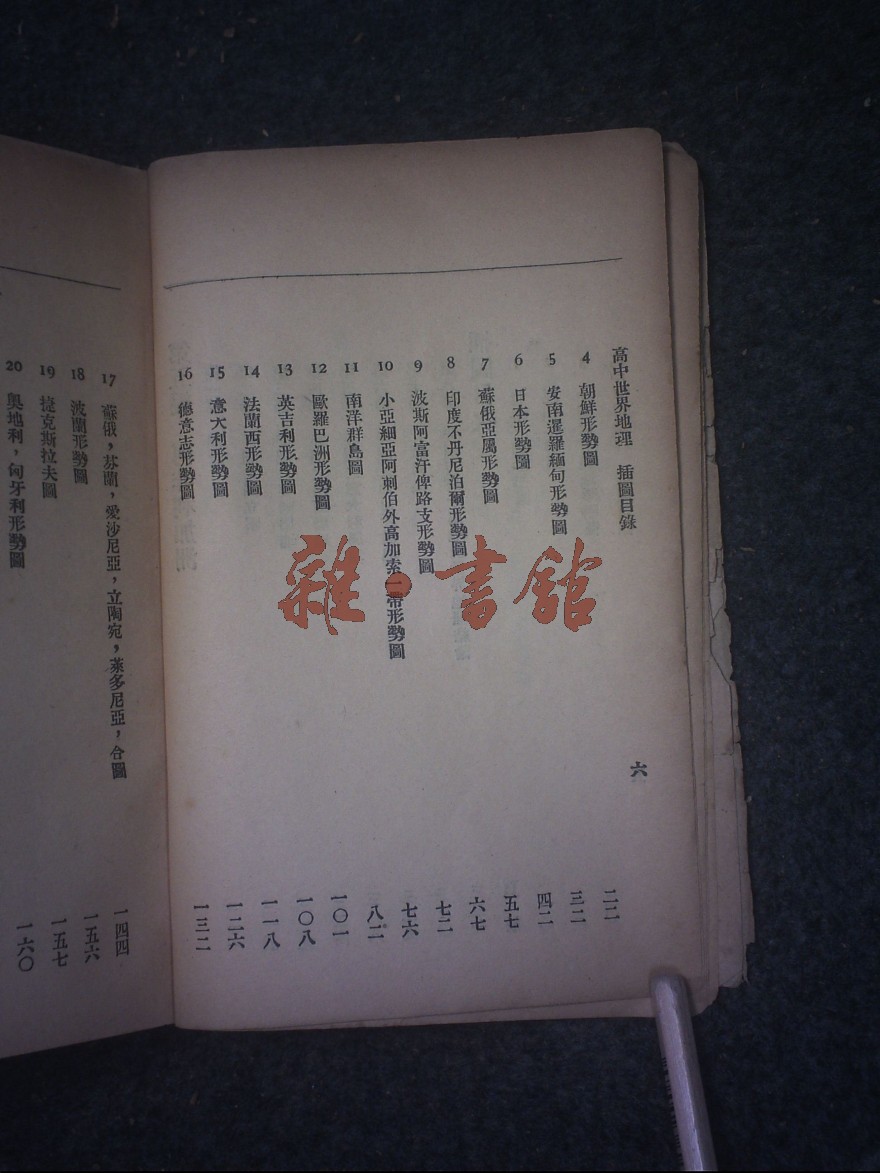 高中世界地理　插圖目錄　六
4　朝鮮形勢圖　二二
5　安南暹羅緬甸形勢圖　三二
6　日本形勢圖　四二
7　蘇俄亞屬形勢圖　五七
8　印度不丹尼泊爾形勢圖　六七
9　波斯阿富汗俾路支形勢圖　七二
10　小亞細亞阿剌伯外高加索一帶形勢圖　七六
11　南洋群島圖　八二
12　歐羅巴洲形勢圖　一〇一
13　英吉利形勢圖　一〇八
14　法蘭西形勢圖　一一八
15　意大利形勢圖　一二六
16　德意志形勢圖　一三二
17　蘇俄，芬蘭，愛沙尼亞，立陶宛，萊多尼亞，合圖　一四四
18　波蘭形勢圖　一五六
19　捷克斯拉夫圖　一五七
20　奧地利，匈牙利形勢圖　一六〇
雜·書館